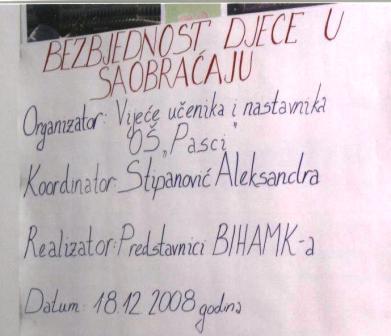 BEZBJEDNOST DJECE U
SAOBRAĆAJU
Organizator: Vijeće učenika i nastavnika
OŠ „Pasci"
Koordinator: Stipanović Aleksandra
Realizator: Predstavnici BIHAMK-a
Datum: 18.12 2008 godina